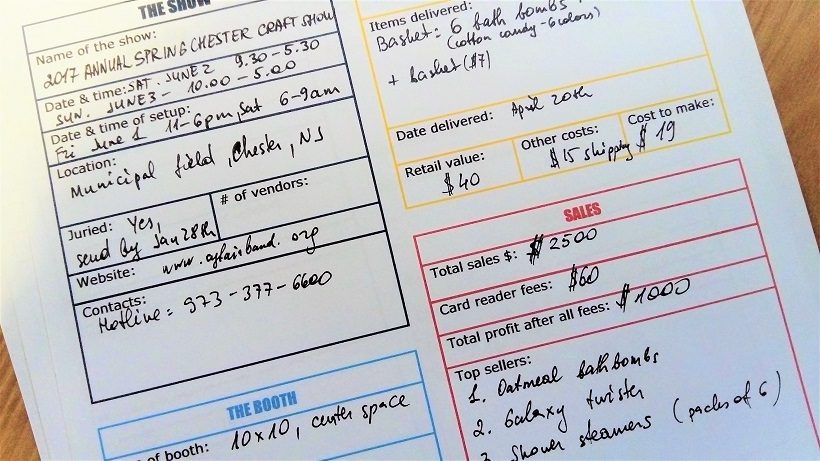 THE SHOW
Name of the show:
2017 ANNUAL SPRING CHESTER CRAFT SHOW
Date & time: SAT. JUNE 2 9.30-5.30
SUN. JUNE 3 - 10.00 - 5.00
Date & time of setup:
Fri June 1 11-6pm, Sat 6-9am
Location:
Municipal field, Chester, NJ
Juried: Yes,
send by Jan 28th
# of vendors:
Website: www.
.org
Contacts:
Hotline = 973-377-6600
THE BOOTH
of booth: 10x10, center space
Items delivered:
Basket: 6 bath bombs,
(cotton candy - 6 colors)
+ basket ($7)
Date delivered: April 20th
Retail value:
$40
Other costs:
$15 shipping
Cost to make:
$19
SALES
Total sales $: $ 2500
Card reader fees: $60
Total profit after all fees: $1000
Top sellers:
1. Oatmeal bath bombs
2. Galaxy twister
3. Shower steamers (packs of 6)